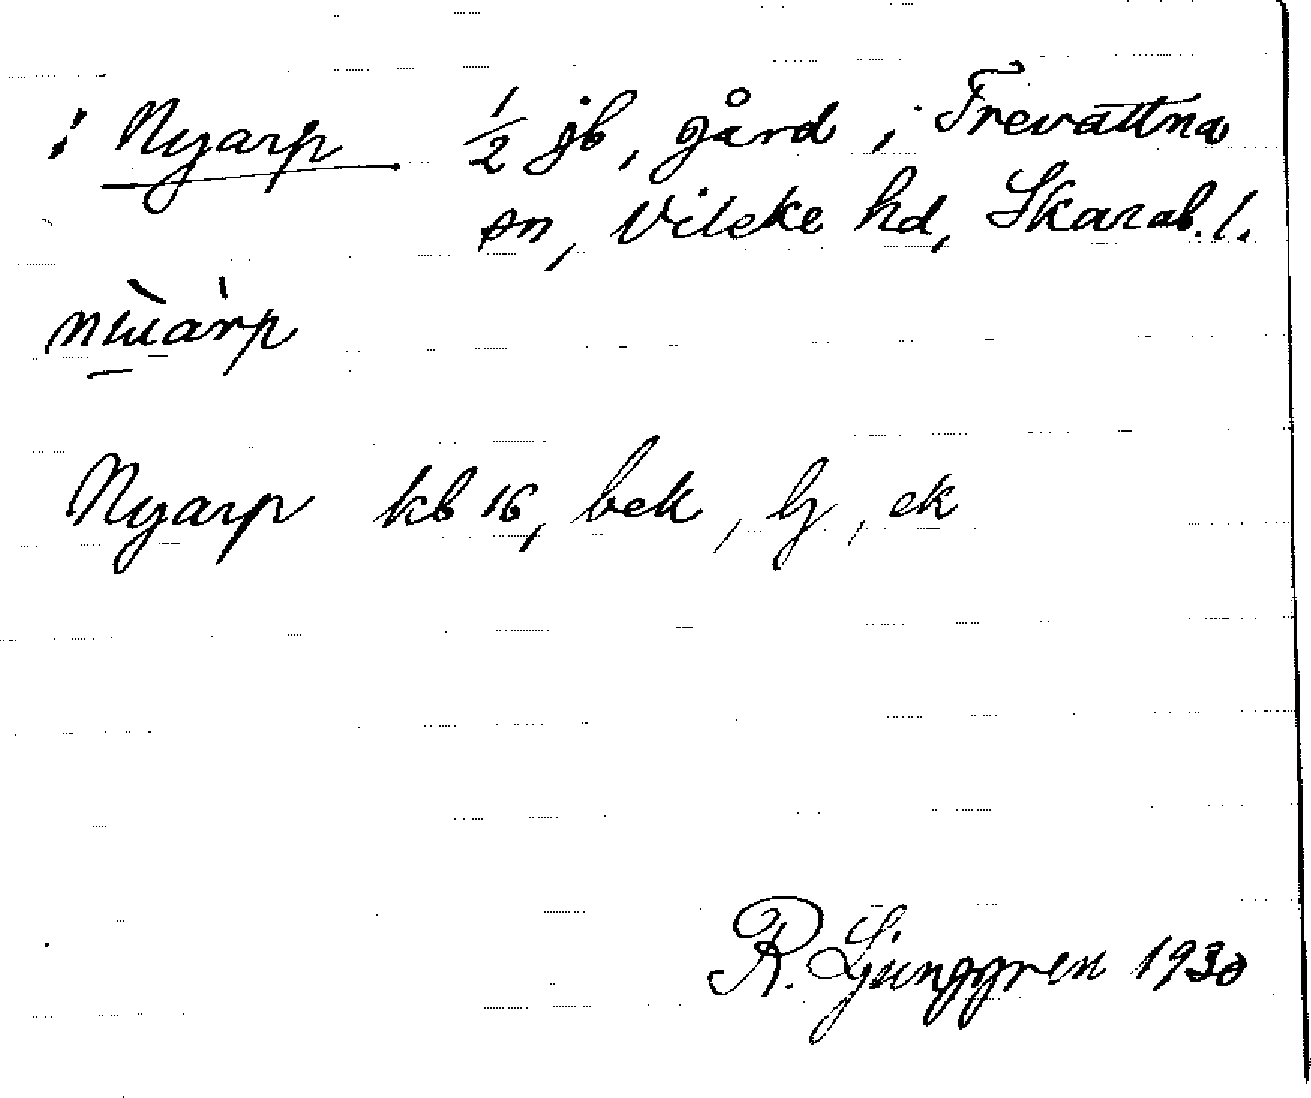 ! Nyarp 1/2 jb, gård i Trevattna
sn, Vilske hd, Skarab. l.
Nyarp kb 16, bek, lj, ek
R. Ljunggren 1930